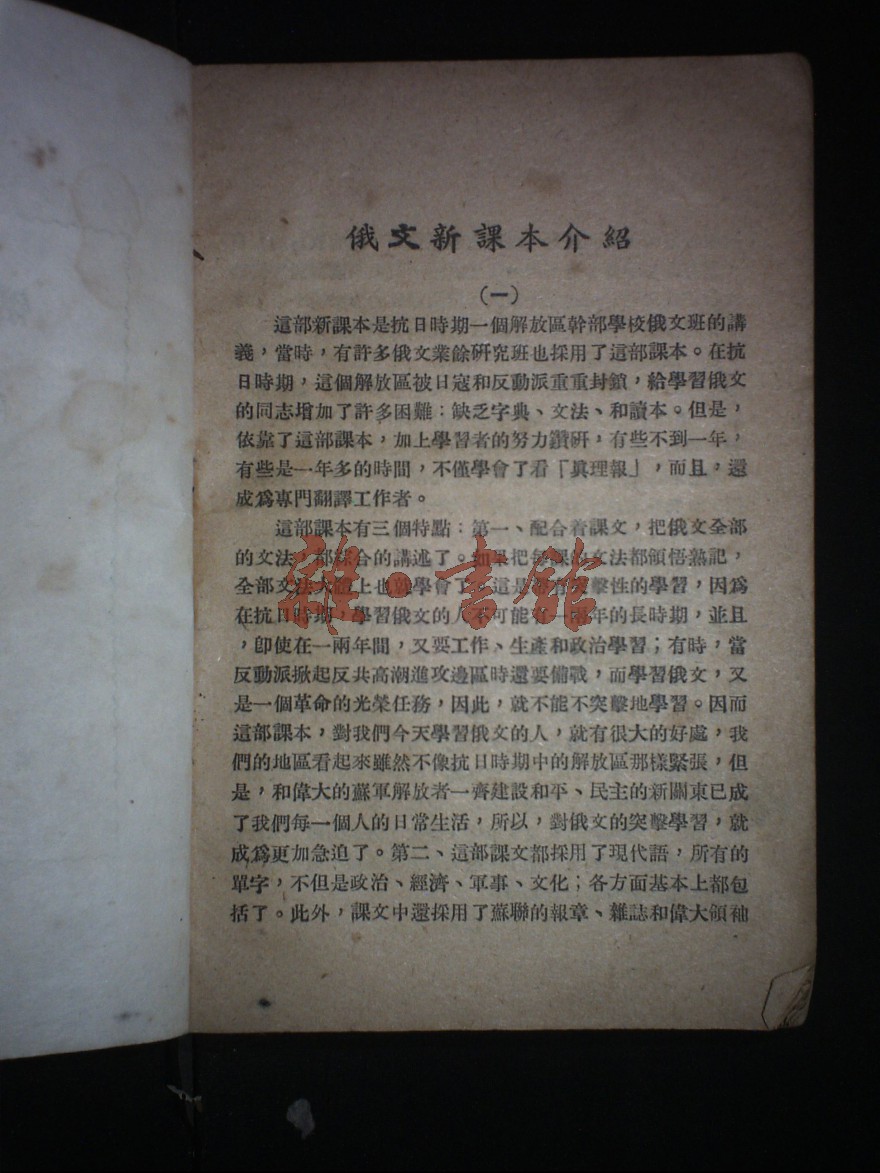 俄文新課本介紹
（一）
這部新課本是抗日時期一個解放區幹部學校俄文班的講
義，當時，有許多俄文業餘研究班也採用了這部課本。在抗
日時期，這個解放區被日寇和反動派重重封鎖，給學習俄文
的同志增加了許多困難：缺乏字典、文法、和讀本。但是，
依靠了這部課本，加上學習者的努力鑽研，有些不到一年，
有些是一年多的時間，不僅學會了看「眞理報」，而且，還
成爲專門翻譯工作者。
這部課本有三個特點：第一、配合着課文，把俄文全部
的文法，都綜合的講述了。如果把每課的文法都領悟熟記，
全部文法大體上也就學會了。這是帶有突擊性的學習，因爲
在抗日時期，學習俄文的人不可能有一兩年的長時期，並且
，卽使在一兩年間，又要工作、生產和政治學習；有時，當
反動派掀起反共高潮進攻邊區時還要備戰，而學習俄文，又
是一個革命的光榮任務，因此，就不能不突擊地學習。因而
這部課本，對我們今天學習俄文的人，就有很大的好處，我
們的地區看起來雖然不像抗日時期中的解放區那樣緊張，但
是，和偉大的蘇軍解放者一齊建設和平、民主的新關東已成
了我們每一個人的日常生活，所以，對俄文的突擊學習，就
成爲更加急迫了。第二、這部課文都採用了現代語，所有的
單字，不但是政治、經濟、軍事、文化；各方面基本上都包
括了。此外，課文中還採用了蘇聯的報章、雜誌和偉大領袖
雜·書館